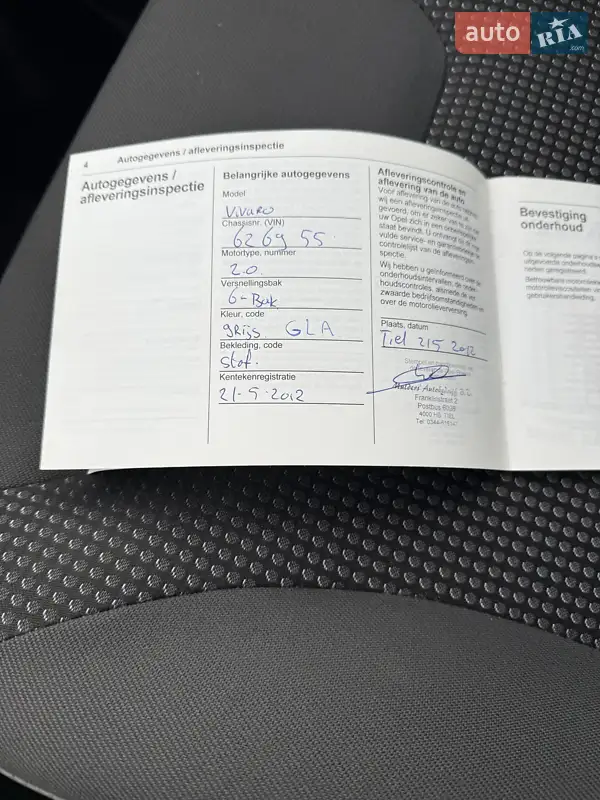 auto RIA
.com
4 Autogegevens / afleveringsinspectie
Autogegevens /
afleveringsinspectie
Belangrijke autogegevens
Model
Vivaro
Chassisnr. (VIN)
6269 55
Motortype, nummer
2.0
Versnellingsbak
6-Bak
Kleur, code
grijs GLA
Bekleding, code
stof.
Kentekenregistratie
21-5-2012
Afleveringscontrole en
aflevering van de auto
Voor aflevering van de auto hebben
wij een afleveringsinspectie uit-
gevoerd, om er zeker van te zijn dat
uw Opel zich in een onberispelijke
staat bevindt. U ontvangt bij de inge-
vulde service- en garantieboekje de
controlelijst van de afleveringsin-
spectie.
Wij hebben u geïnformeerd over de
onderhoudsintervallen, de onder-
houdscontroles, alsmede de ver-
zwaarde bedrijfsomstandigheden en
over de motorolieverversing.
Plaats, datum
Tiel 215 2012
Mulders Autobedrijf B.V.
Franklinstraat 2
Postbus 6028
4000 HS TIEL
Tel.
Bevestiging
onderhoud
Op de volgende pagina's
uitgevoerde onderhoud
neden geregistreerd.
gebruikshandleiding.